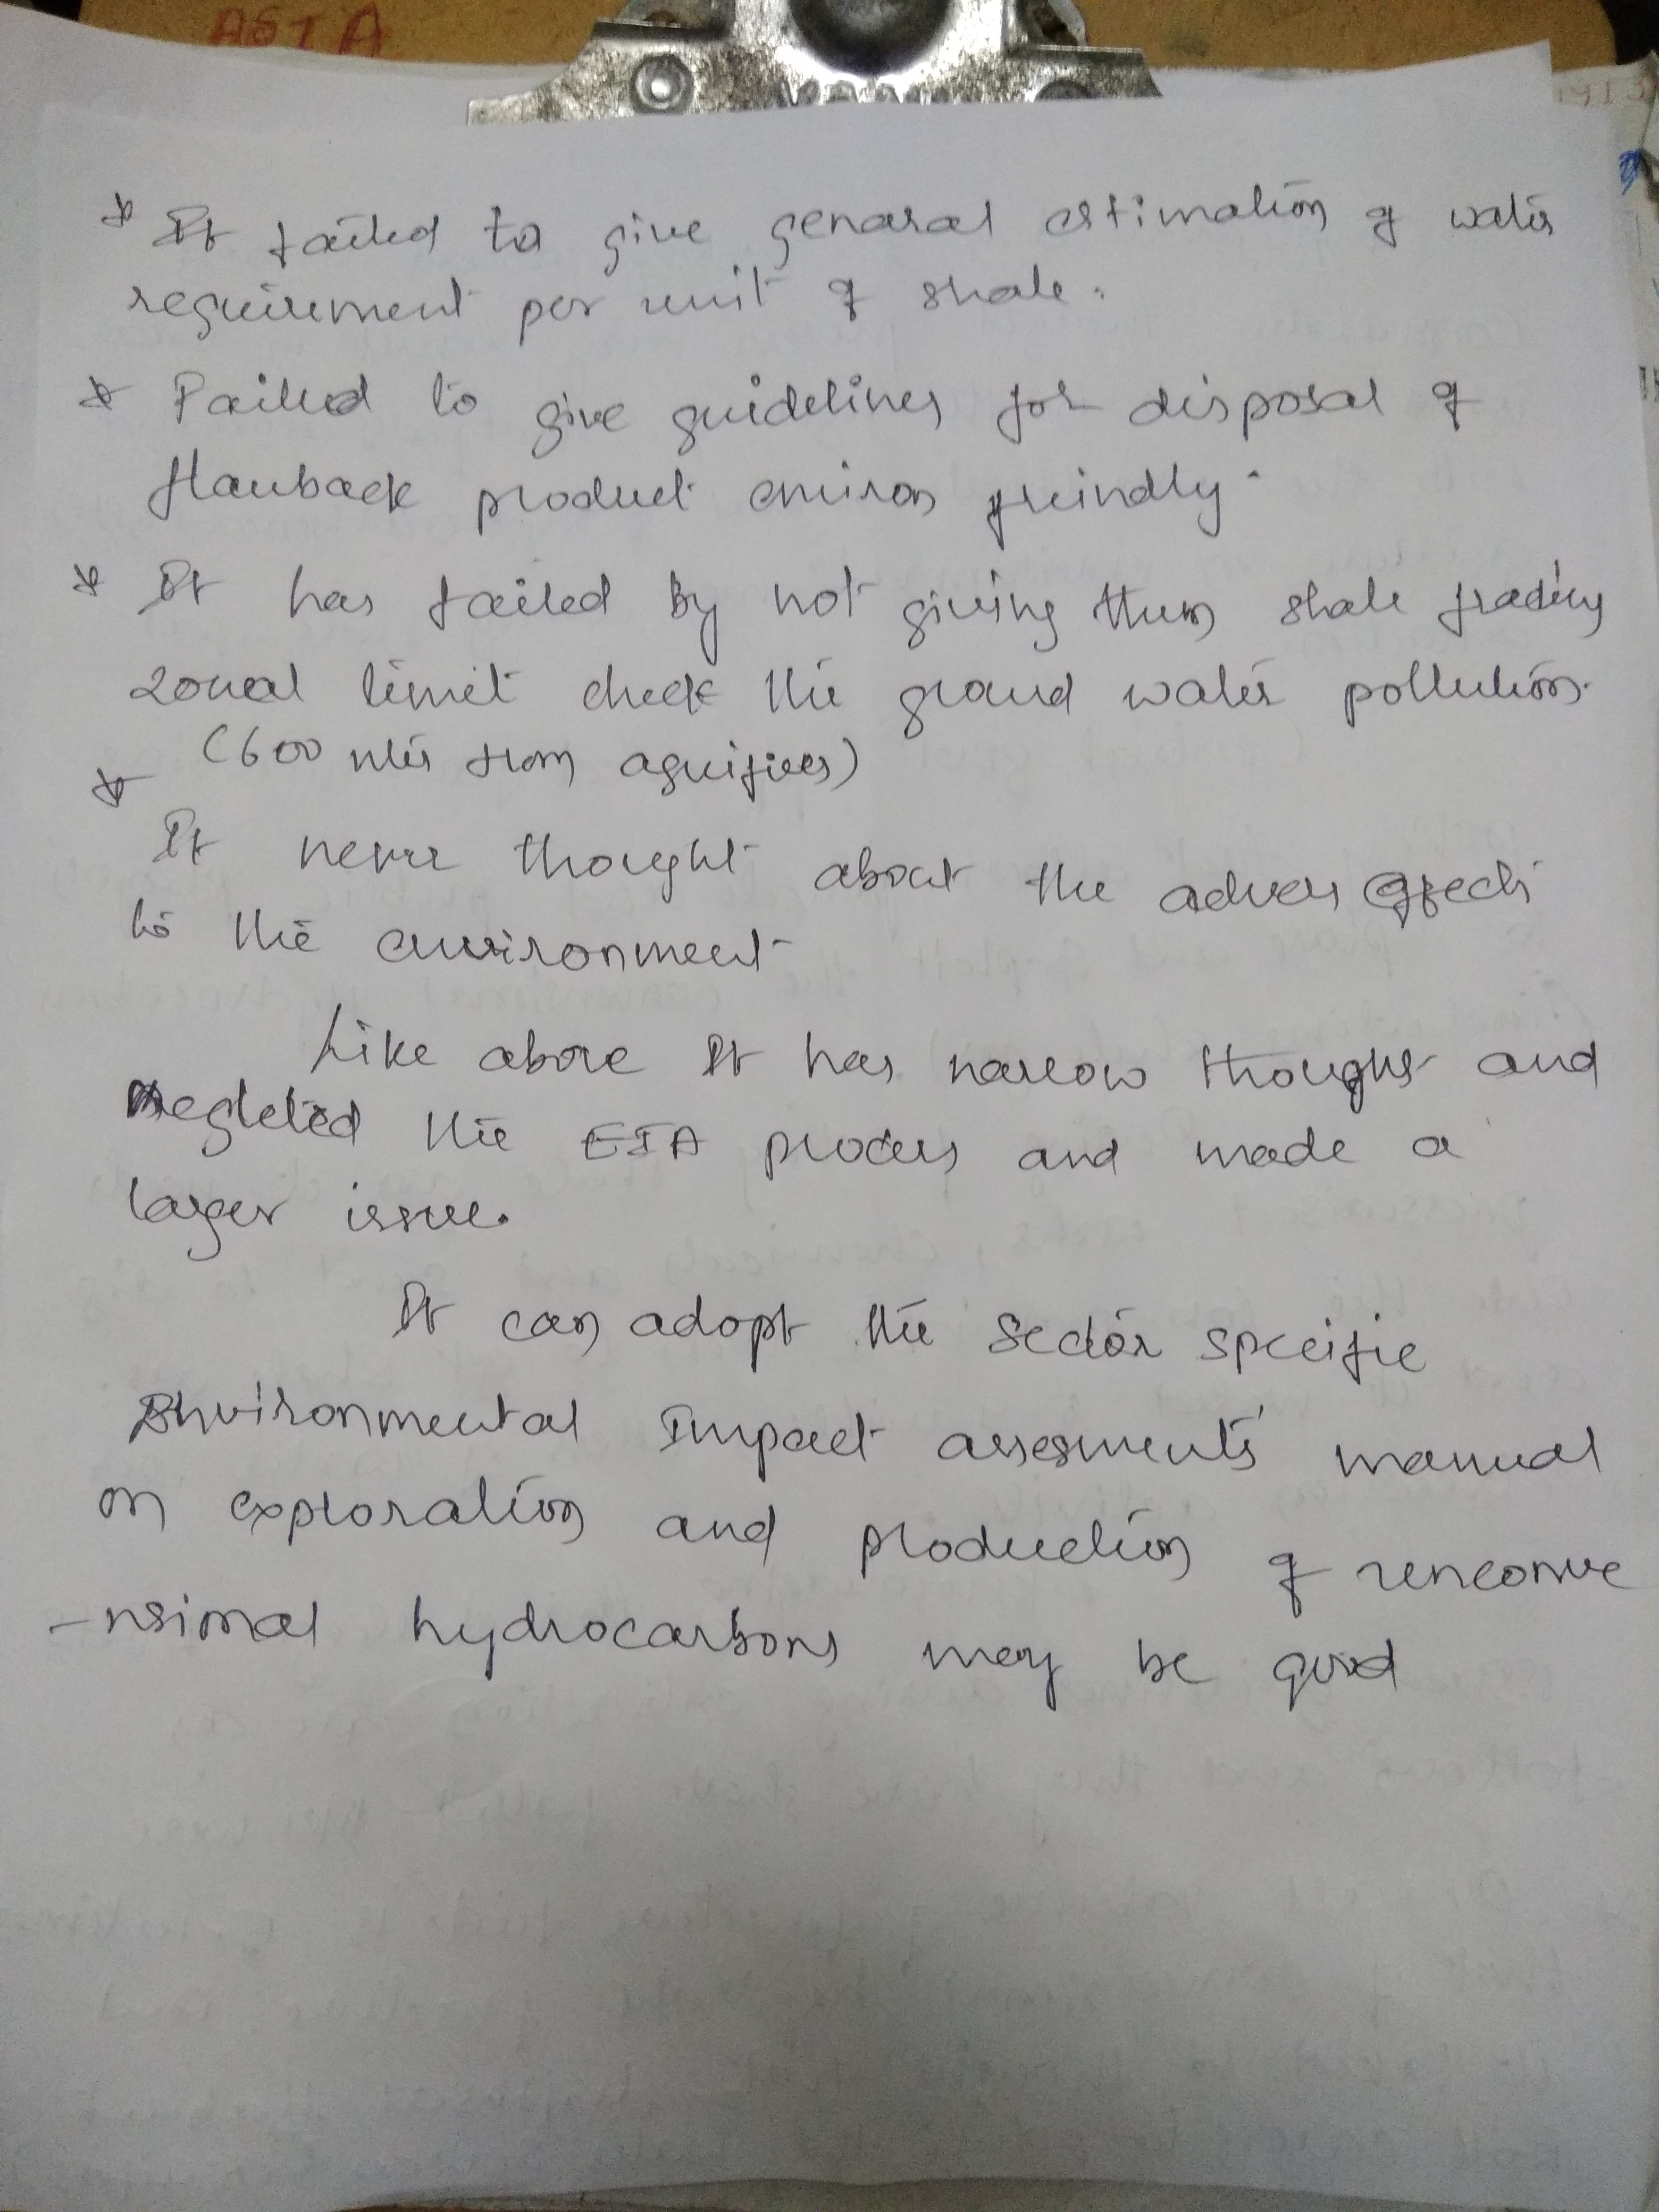 AGIA
* It failed to give genaral estimation of water
requirement per unit of shale.
* Failed to give guidelines for disposal of
flauback product environ freindly.
* It has failed by not giving them shale
zoneal limit check the graund water pollution.
(600 mtr from aquifires)
*
It never thought about the advers effects
to the environment
Like above It has narrow thought and
negleted the EIA process and made a
larger issue.
It can adopt the Sector specific
Environmental Impact assesments manual
on exploration and production of unconve
-nsional hydrocarbons may be good